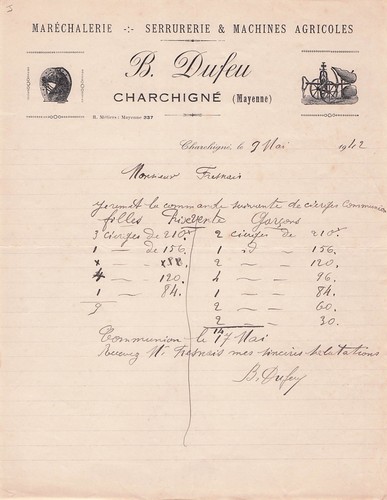 MARÉCHALERIE -:- SERRURERIE & MACHINES AGRICOLES
B. Dufeu
CHARCHIGNÉ (Mayenne)
R. Métiers : Mayenne 237
Charchigné, le 9 Mai 1942
Monsieur Fresnais
la commande suivante de cierges Communion
filles Garçons
3 cierges de 210r 2 cierges de 210r
1 — de 156. 1 d — 156.
x — — 2 — — 120.
4 — 120. 4 — — 96.
1 — 84. 1 — — 84.
9 2 — — 60.
2 — — 30.
14
Communion le 17 Mai
Recevez Mr Fresnais mes sincères salutations
B. Dufeu